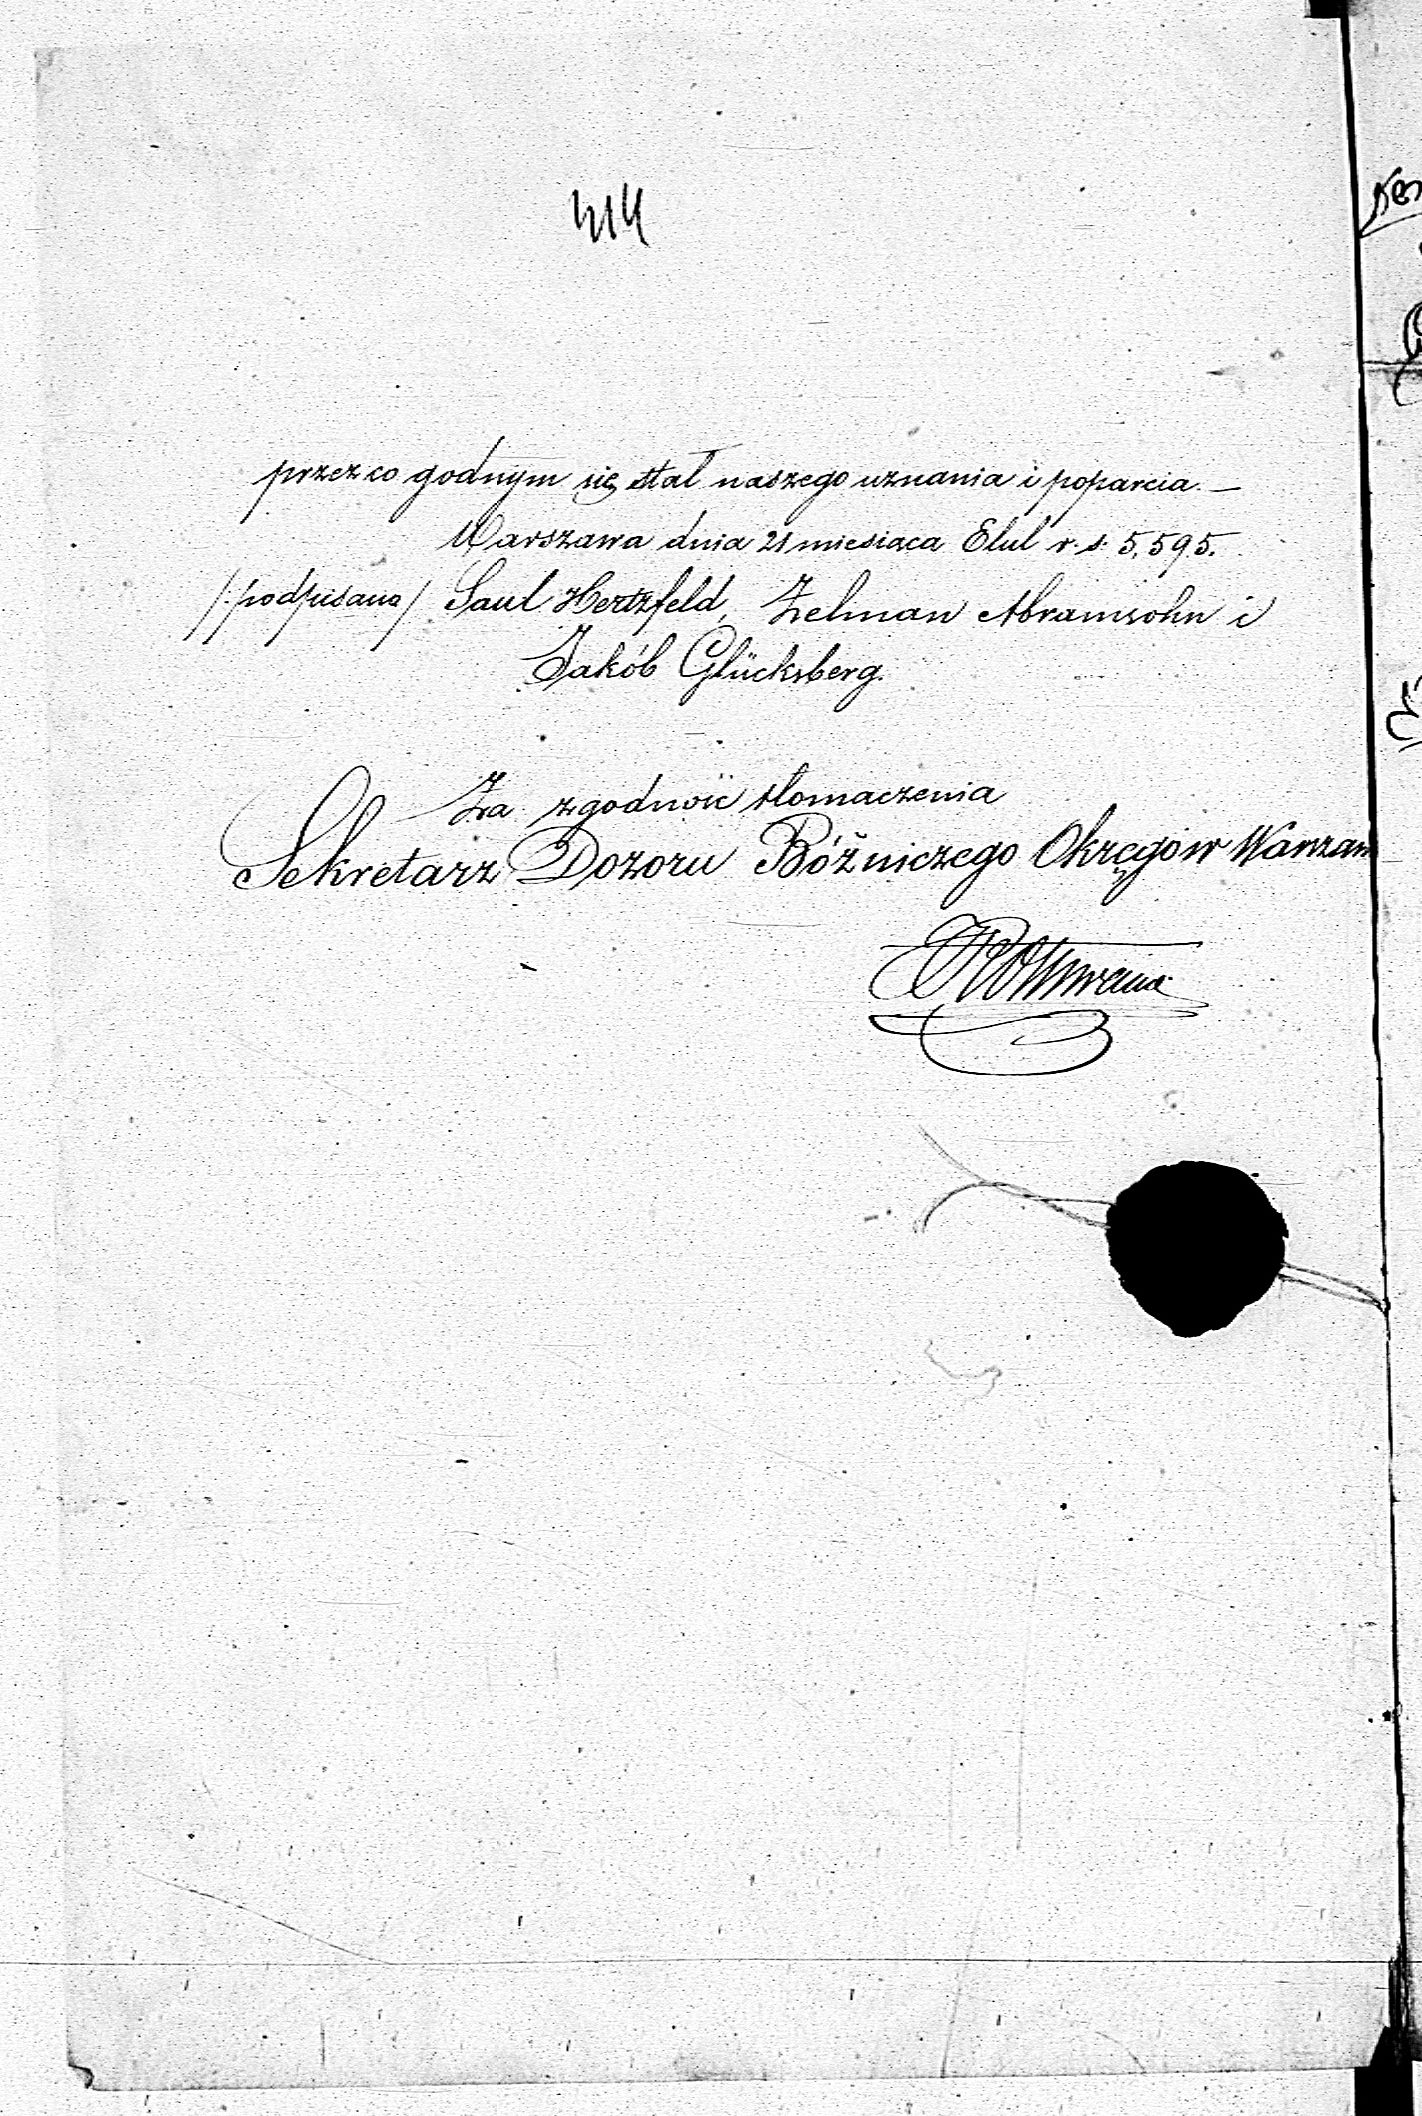 414
przez co godnym się stał naszego uznania i poparcia. —
Warszawa dnia 21 miesiąca Elul r. s. 5,595.
/:podpisano/ Saul Hertzfeld, Zelman Abramsohn i
Jakób Glücksberg.
Za zgodność tłomaczenia
Sekretarz Dozoru Bóżniczego Okręgów Warszaw